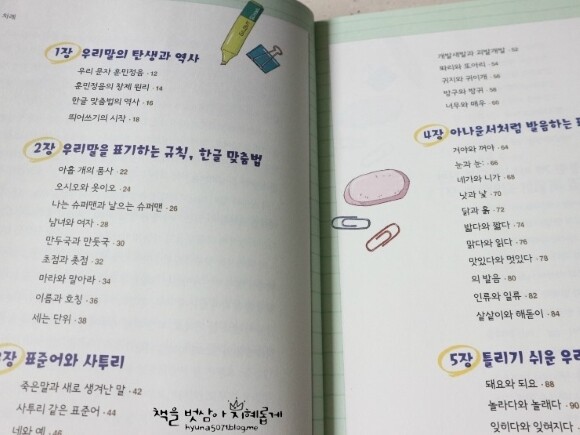 차례
1장 우리말의 탄생과 역사
우리 문자 훈민정음 · 12
훈민정음의 창제 원리 · 14
한글 맞춤법의 역사 · 16
띄어쓰기의 시작 · 18
2장 우리말을 표기하는 규칙, 한글 맞춤법
아홉 개의 품사 · 22
오시오와 옷이오 · 24
나는 슈퍼맨과 날으는 슈퍼맨 · 26
남녀와 여자 · 28
만두국과 만둣국 · 30
초점과 촛점 · 32
마라와 말아라 · 34
이름과 호칭 · 36
세는 단위 · 38
3장 표준어와 사투리
죽은말과 새로 생겨난 말 · 42
사투리 같은 표준어 · 44
네와 예 · 46
개발새발과 괴발개발 · 52
똬리와 또아리 · 54
귀지와 귀이개 · 56
방구와 방귀 · 58
너무와 매우 · 66
4장 아나운서처럼 발음하는
거야와 꺼야 · 64
눈과 눈: · 66
네가와 니가 · 68
낫과 낯 · 70
닭과 흙 · 72
밟다와 짧다 · 74
맑다와 읽다 · 76
맛있다와 멋있다 · 78
의 발음 · 80
인류와 일류 · 82
살살이와 해돋이 · 84
5장 틀리기 쉬운 우리
돼요와 되요 · 88
놀라다와 놀래다 · 90
잊히다와 잊혀지다 · 92
책을 벗삼아 지혜롭게
hyuna5071blog.me